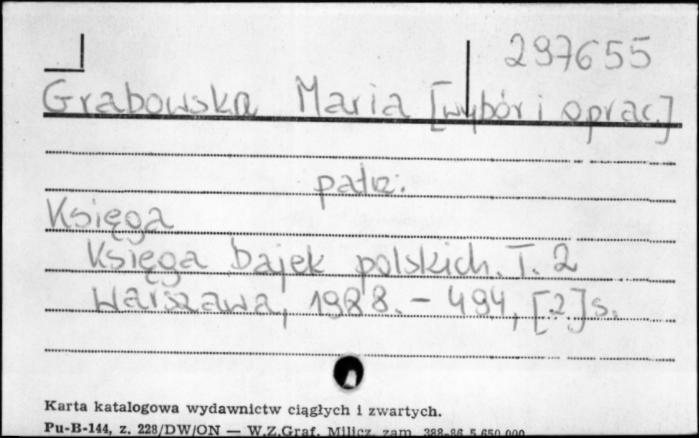 297655
Grabowska Maria [wybór i oprac.]
patrz:
Księga
Księga bajek polskich. T. 2
Warszawa, 1988. – 494, [2] s.
Karta katalogowa wydawnictw ciągłych i zwartych.
Pu-B-144, z. 228/DW/ON — W.Z.Graf. Milicz, zam. 388-86 5.650.000